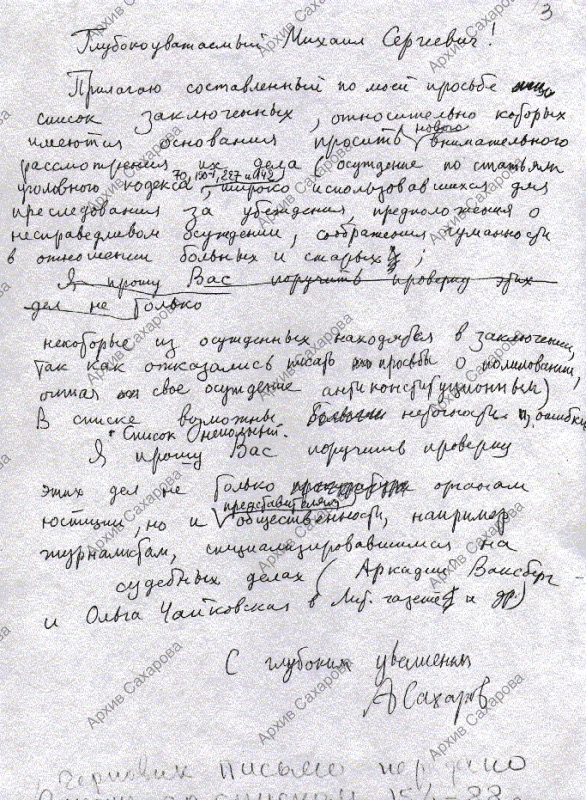 3
Глубокоуважаемый Михаил Сергеевич!
Прилагаю составленный по моей просьбе
список заключенных, относительно которых
имеются основания просить нового внимательного
рассмотрения их дела (осуждение по статьям
уголовного кодекса 70, 190-1, 227 и 142, широко использовавшихся для
преследования за убеждения, предположения о
несправедливом осуждении, соображения гуманности
в отношении больных и старых;
Я прошу Вас поручить проверку этих
дел не только
некоторые из осужденных находятся в заключении,
так как отказались писать просьбы о помиловании,
считая свое осуждение антиконституционным)
В списке возможны неточности и ошибки
Список неполный.
Я прошу Вас поручить проверку
этих дел не только органам
юстиции, но и представителям общественности, например
журналистам, специализировавшимся на
судебных делах (Аркадий Ваксберг
и Ольга Чайковская в Лит. газете и др.)
С глубоким уважением
А Сахаров
Черновик письма передано
Архив Сахарова